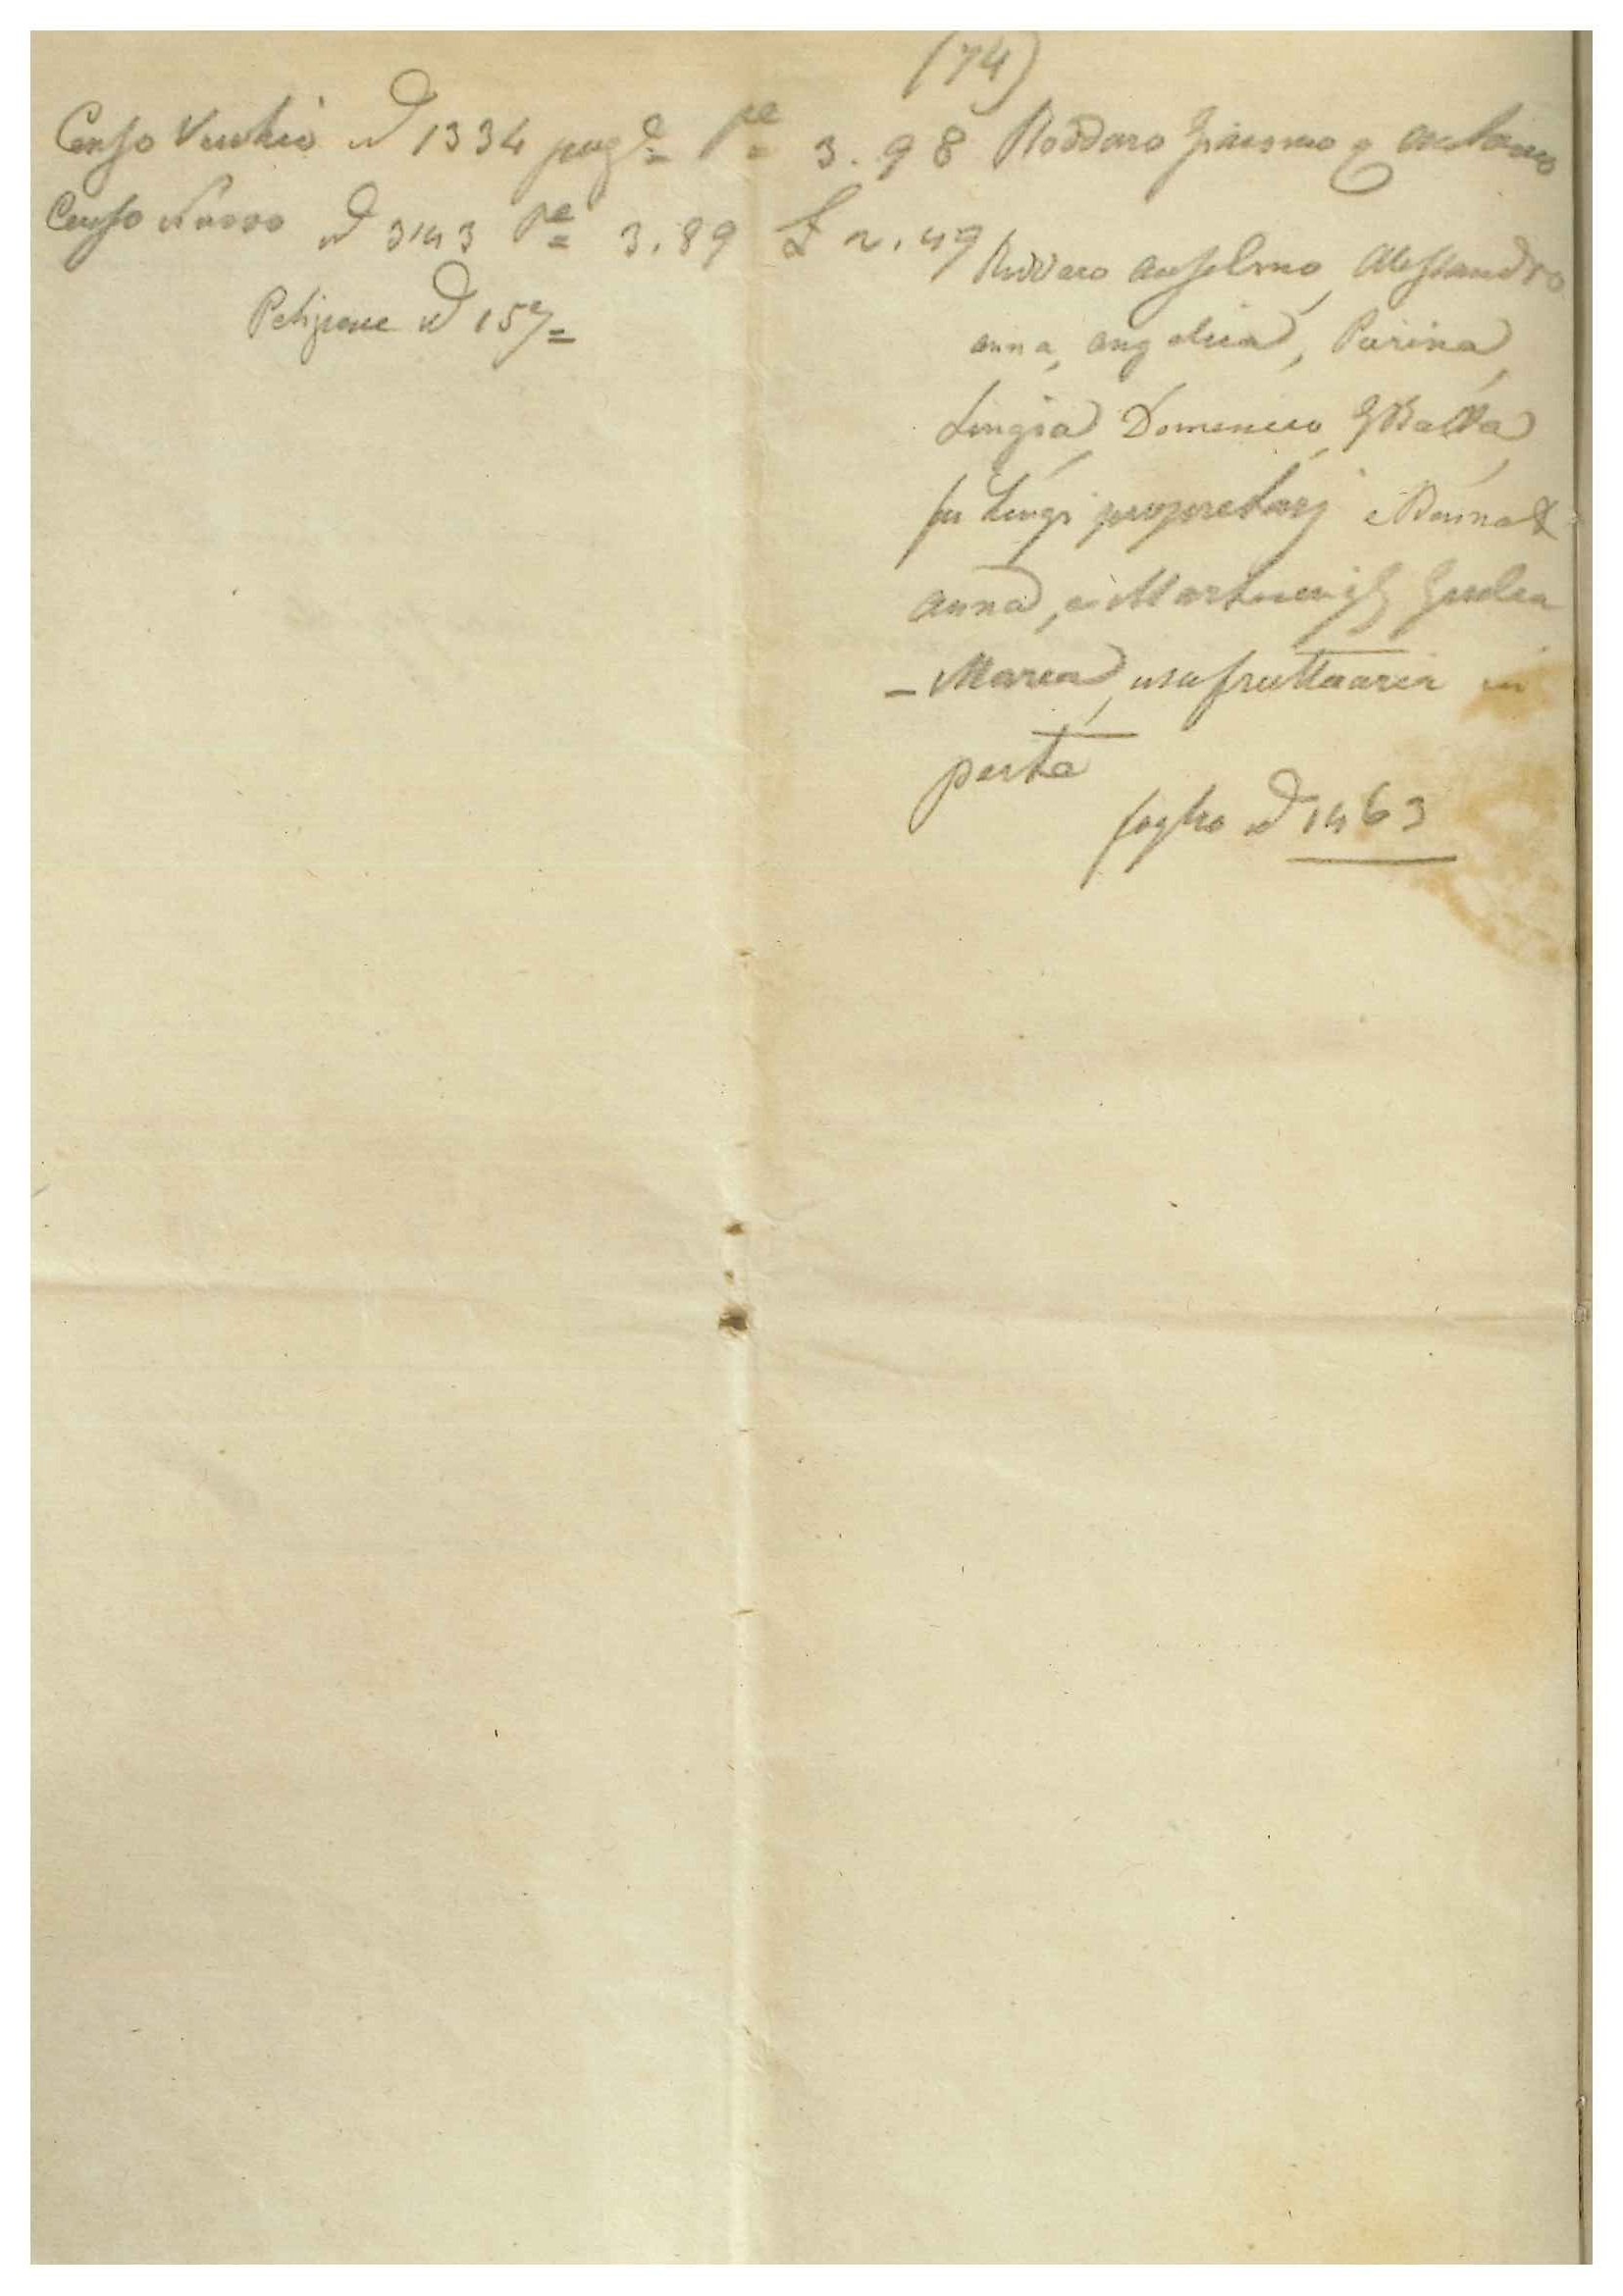 (74)
Censo Vecchio N 1334 pert 3.98 Roddaro Giacomo q Antonio
Censo Nuovo N 3143 Pe 3.89 £ 2.49
Roddaro Anselmo, Alessandro
Anna, Angelica, Pierina,
Luigia, Domenico, GBatta,
fu Luigi proprietarj e
Anna, e Giulia
Maria, usufruttuaria in
parte
Petizione N 157
foglio N 1463